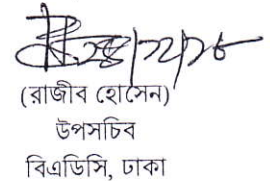 (রাজীব হোসেন)
উপসচিব
বিএডিসি, ঢাকা